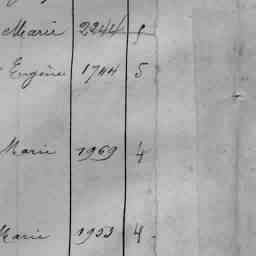 Marie 2244
Eugène 1744 5
Marie 1969 4
Marie 1953 4